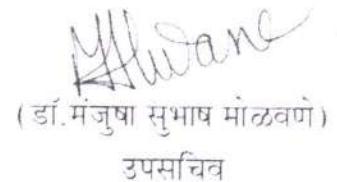 ( डॉ.मंजुषा सुभाष मोळवणे )
उपसचिव